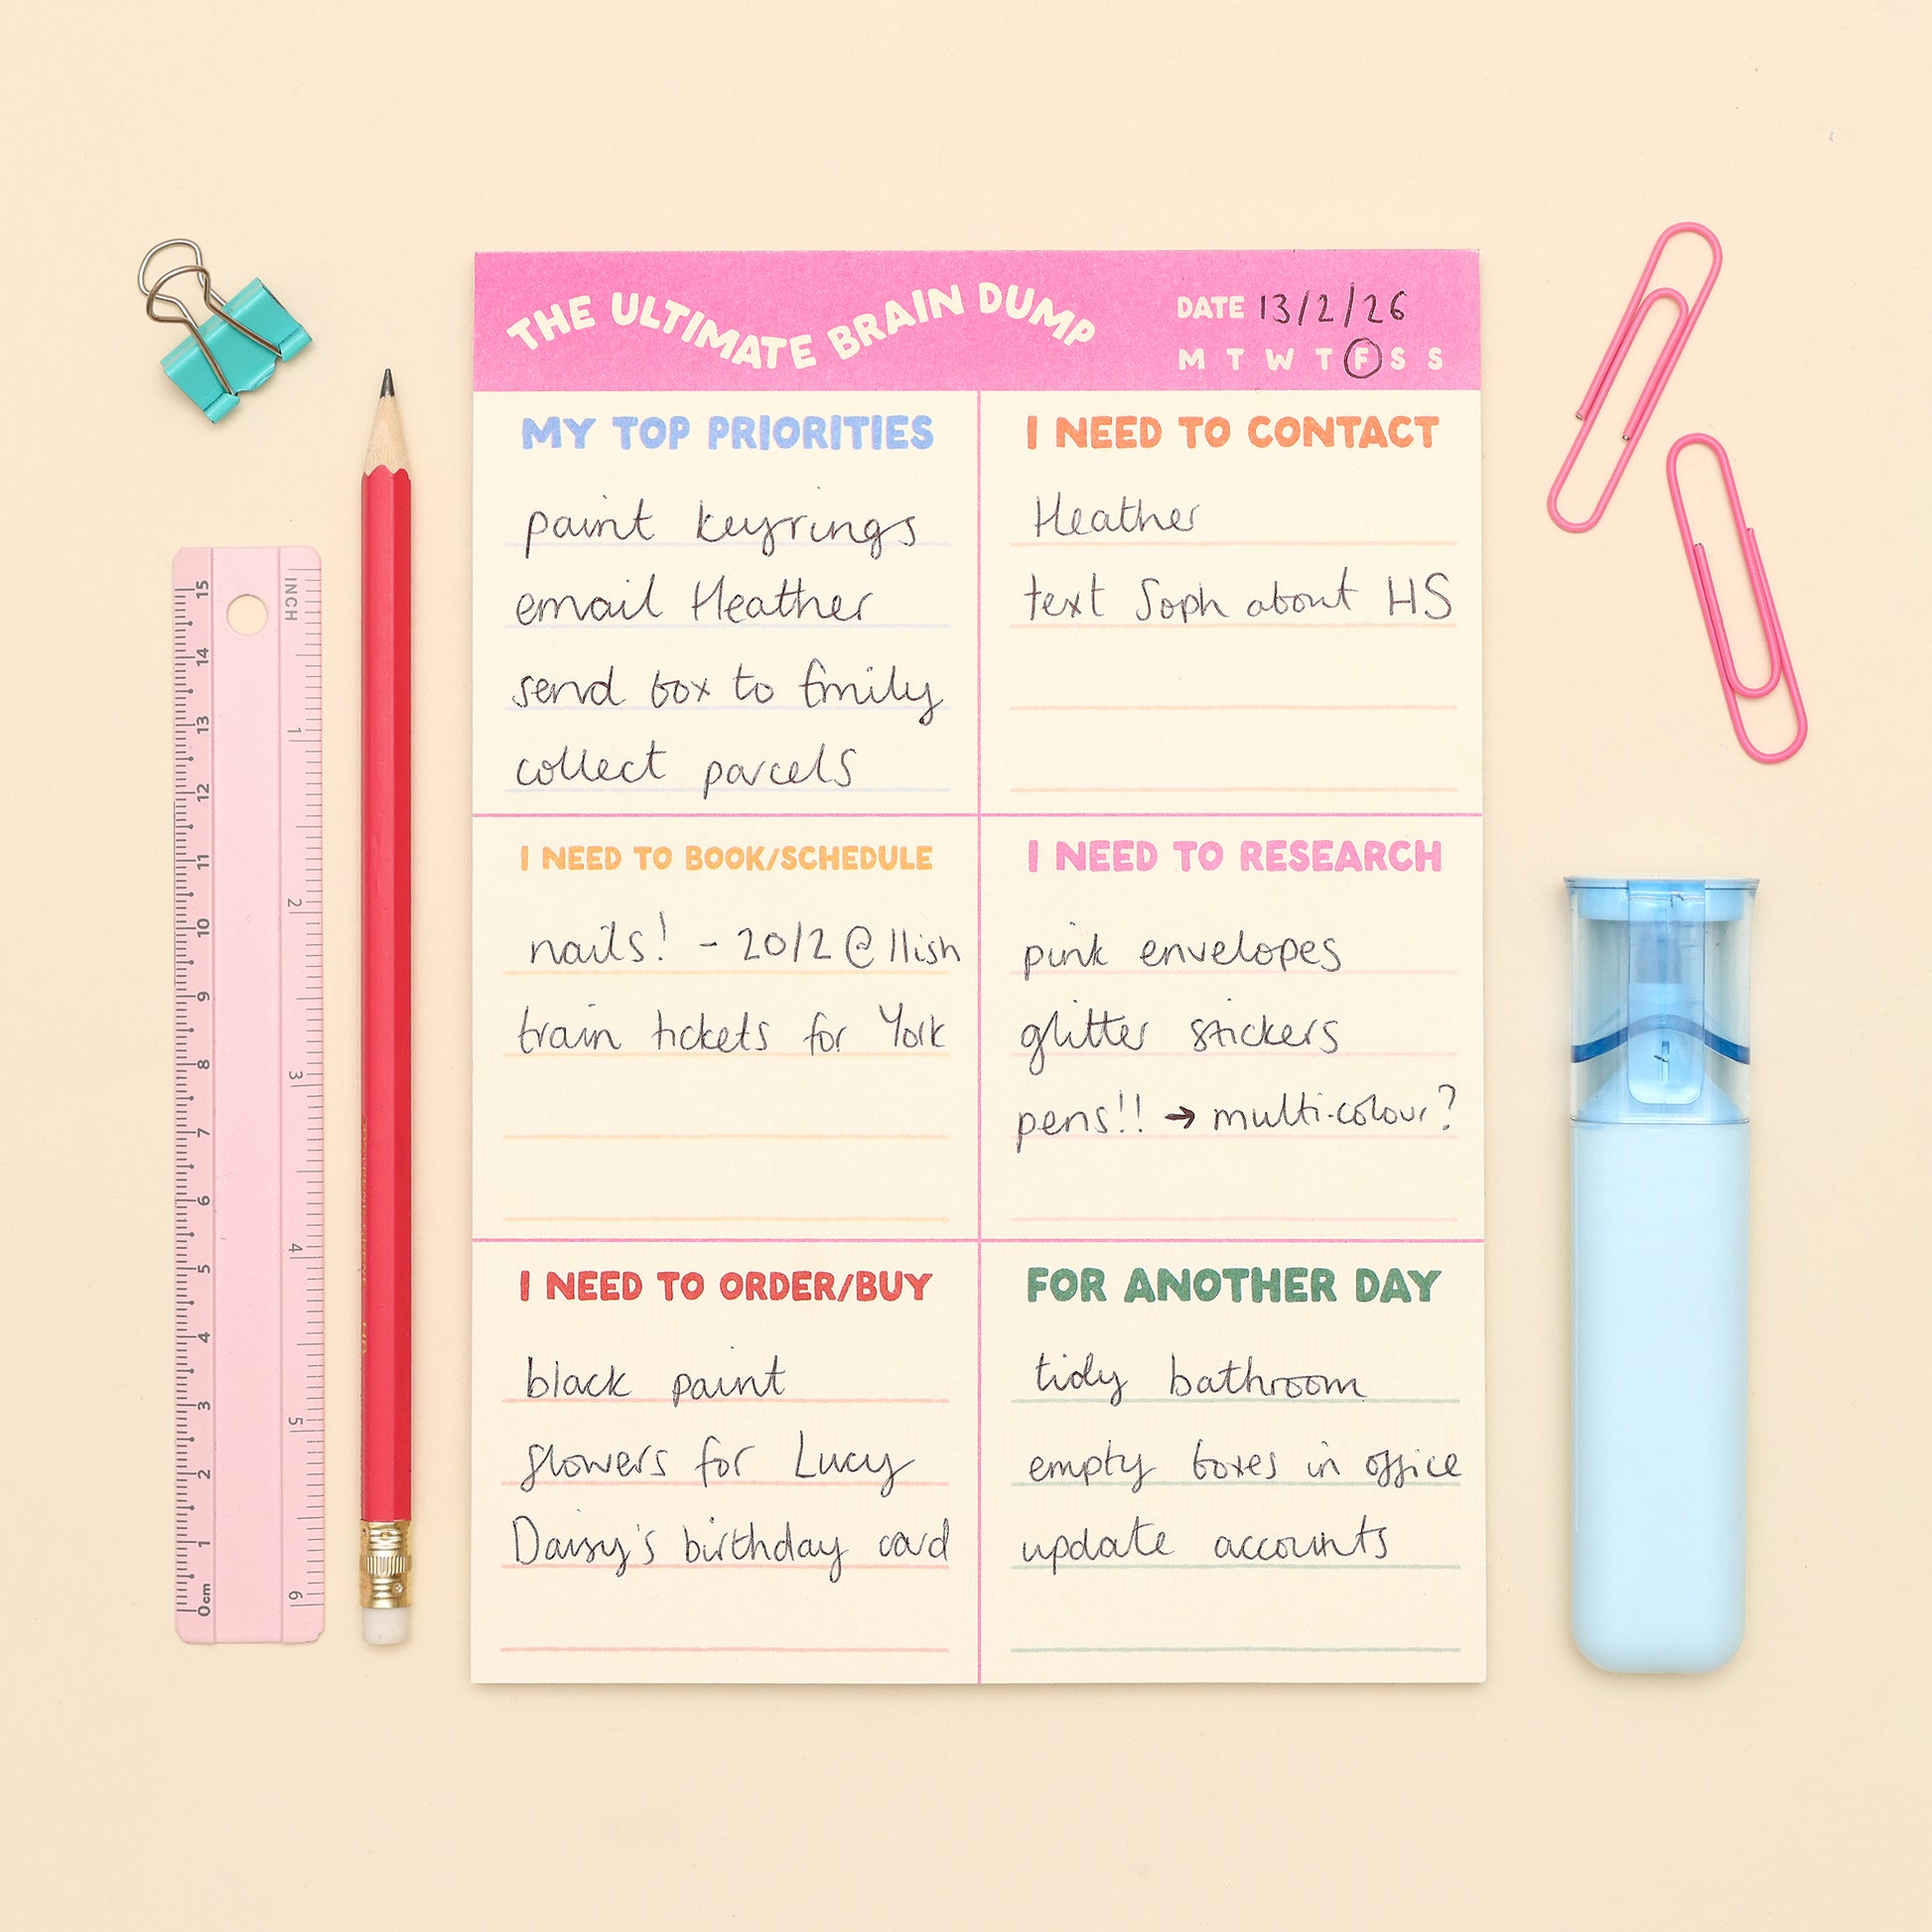 THE ULTIMATE BRAIN DUMP
DATE 13/2/26
M T W T F S S
MY TOP PRIORITIES
paint keyrings
email Heather
send box to Emily
collect parcels
I NEED TO CONTACT
Heather
text Soph about HS
I NEED TO BOOK/SCHEDULE
nails! - 20/2 @ 11ish
train tickets for York
I NEED TO RESEARCH
pink envelopes
glitter stickers
pens!! → multi-colour?
I NEED TO ORDER/BUY
black paint
flowers for Lucy
Daisy's birthday card
FOR ANOTHER DAY
tidy bathroom
empty boxes in office
update accounts
15 14 13 12 11 10 9 8 7 6 5 4 3 2 1 0cm
INCH 1 2 3 4 5 6